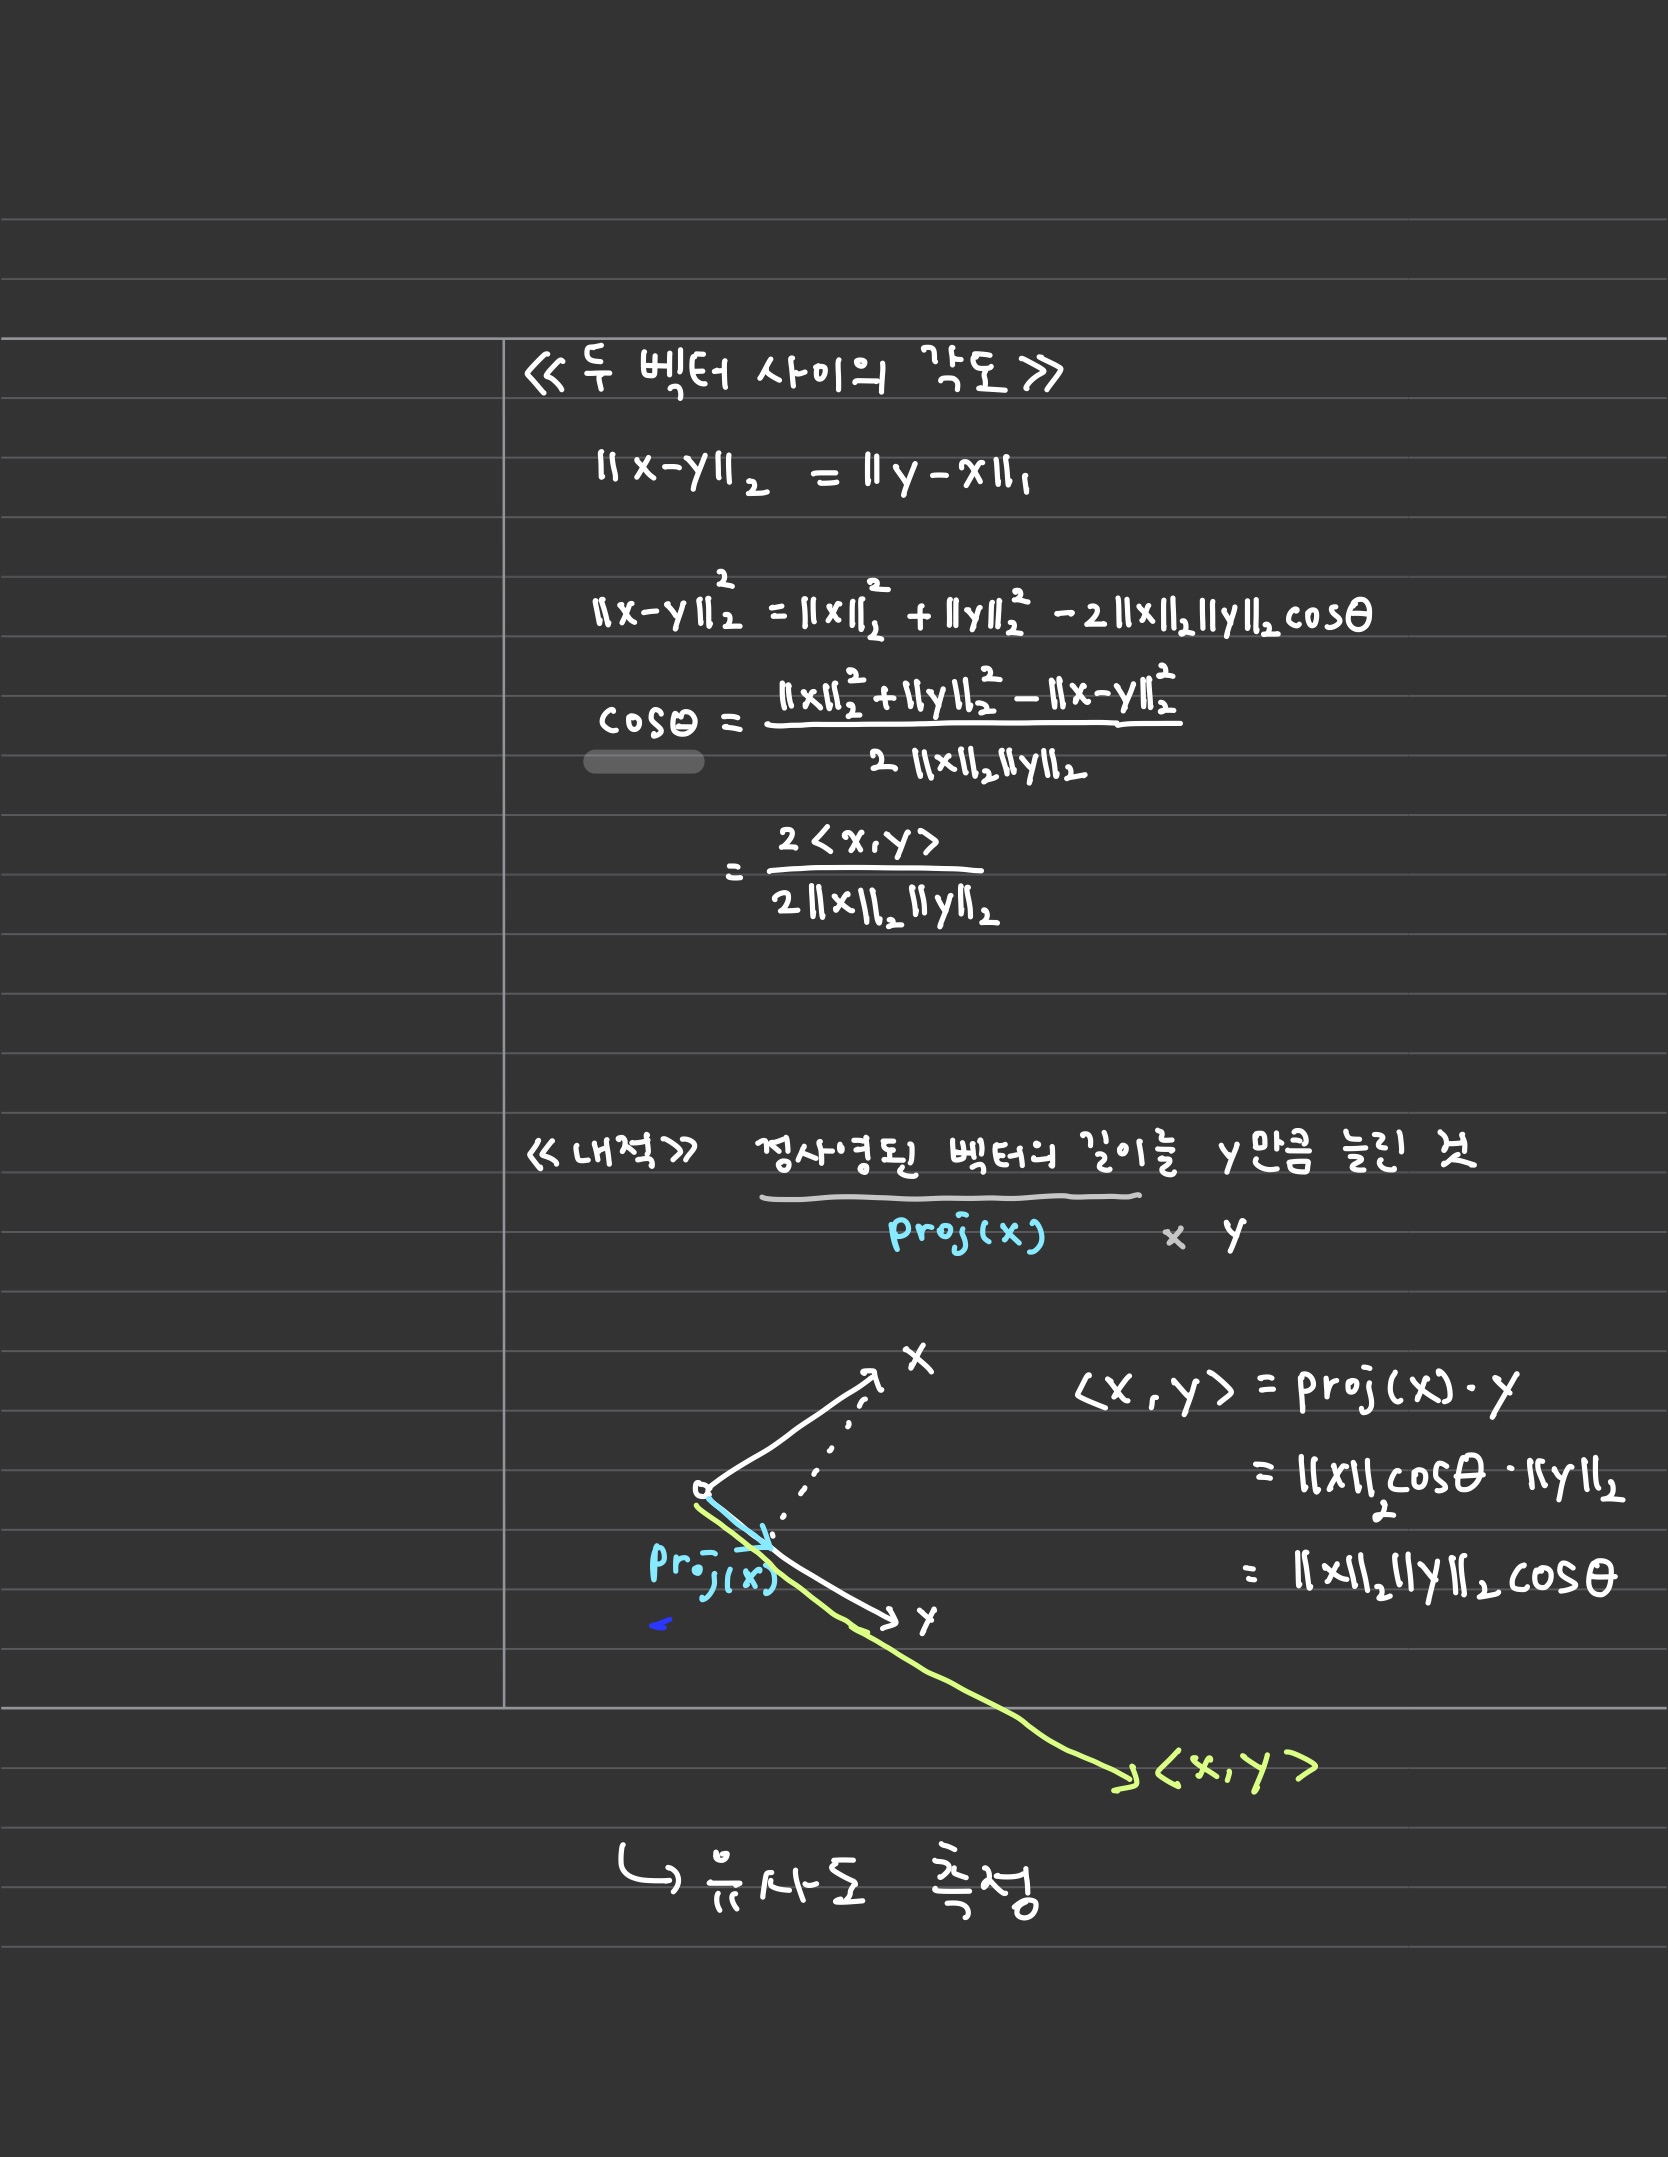 ≪두 벡터 사이의 각도≫
||x-y||₂ = ||y-x||₁
||x-y||₂² = ||x||₂² + ||y||₂² - 2||x||₂||y||₂cosθ
cosθ = (||x||₂² + ||y||₂² - ||x-y||₂²) / (2||x||₂||y||₂)
= 2<x,y> / 2||x||₂||y||₂
≪내적≫ 정사영된 벡터의 길이를 y만큼 늘린 것
proj(x) × y
x
<x,y> = proj(x)·y
= ||x||₂cosθ·||y||₂
proj(x)
= ||x||₂||y||₂cosθ
y
<x,y>
↳ 유사도 측정